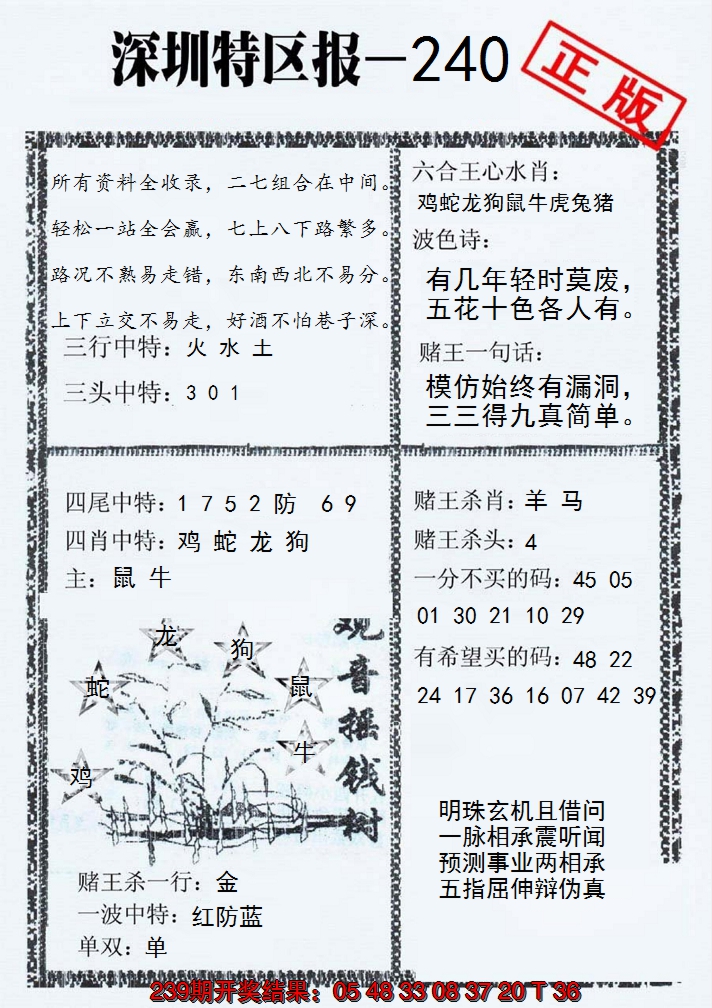 深圳特区报—240
正版
所有资料全收录，二七组合在中间。
轻松一站全会赢，七上八下路繁多。
路况不熟易走错，东南西北不易分。
上下立交不易走，好酒不怕巷子深。
三行中特：火 水 土
三头中特：3 0 1
六合王心水肖：
鸡蛇龙狗鼠牛虎兔猪
波色诗：
有几年轻时莫废，
五花十色各人有。
赌王一句话：
模仿始终有漏洞，
三三得九真简单。
四尾中特：1 7 5 2 防 6 9
四肖中特：鸡 蛇 龙 狗
主：鼠 牛
龙
狗
蛇
鼠
牛
鸡
观音摇钱树
赌王杀一行：金
一波中特：红防蓝
单双：单
赌王杀肖：羊 马
赌王杀头：4
一分不买的码：45 05
01 30 21 10 29
有希望买的码：48 22
24 17 36 16 07 42 39
明珠玄机且借问
一脉相承震听闻
预测事业两相承
五指屈伸辩伪真
239期开奖结果：05 48 33 08 37 20 T 36